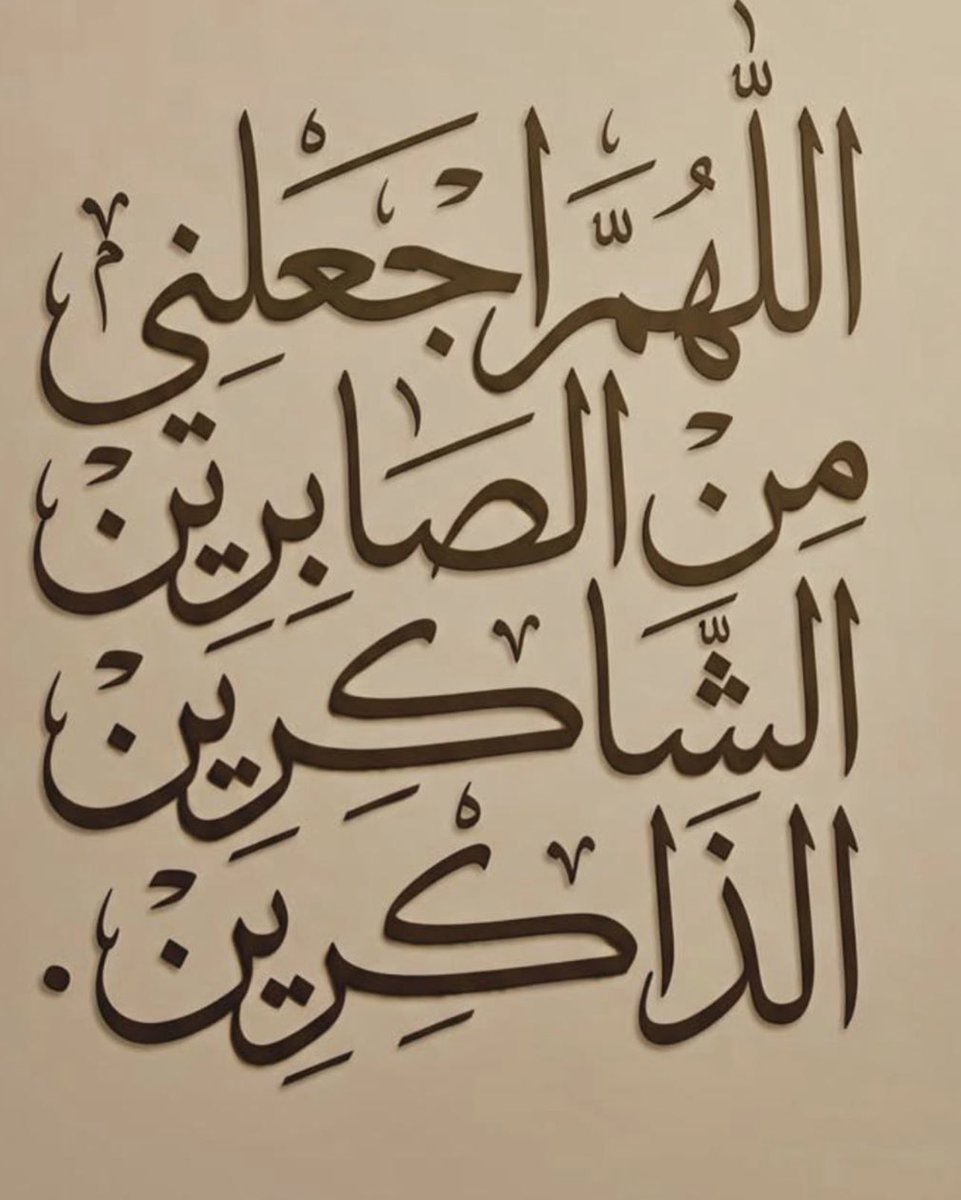 اللّٰهُمَّ اجْعَلنِي
مِنْ الصَابِرِتينْ
الشَّاكِرِينْ
الذَاكِرِينْ.